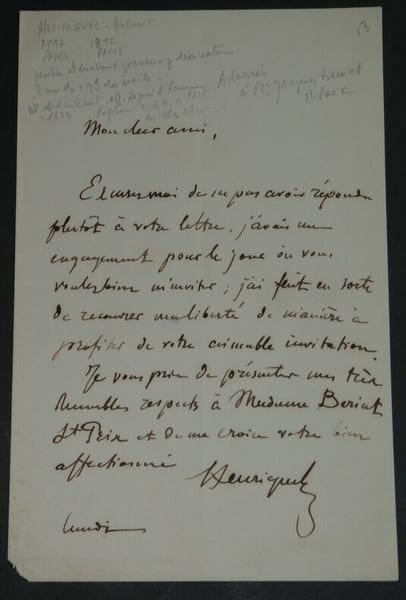 HENRIQUEL-DUPONT
1797 - 1892
PARIS PARIS
13
Adressée
à Mr
Mon cher ami,
Excusez moi de ne pas avoir répondu
plutôt à votre lettre, j'avais un
engagement pour le jour où vous
voulez bien m'inviter ; j'ai fait en sorte
de recouvrer ma liberté de manière à
profiter de votre aimable invitation.
Je vous prie de présenter mes très
humbles respects à Madame Beriat
St Prix et de me croire votre bien
affectionné
Henriquel
lundi